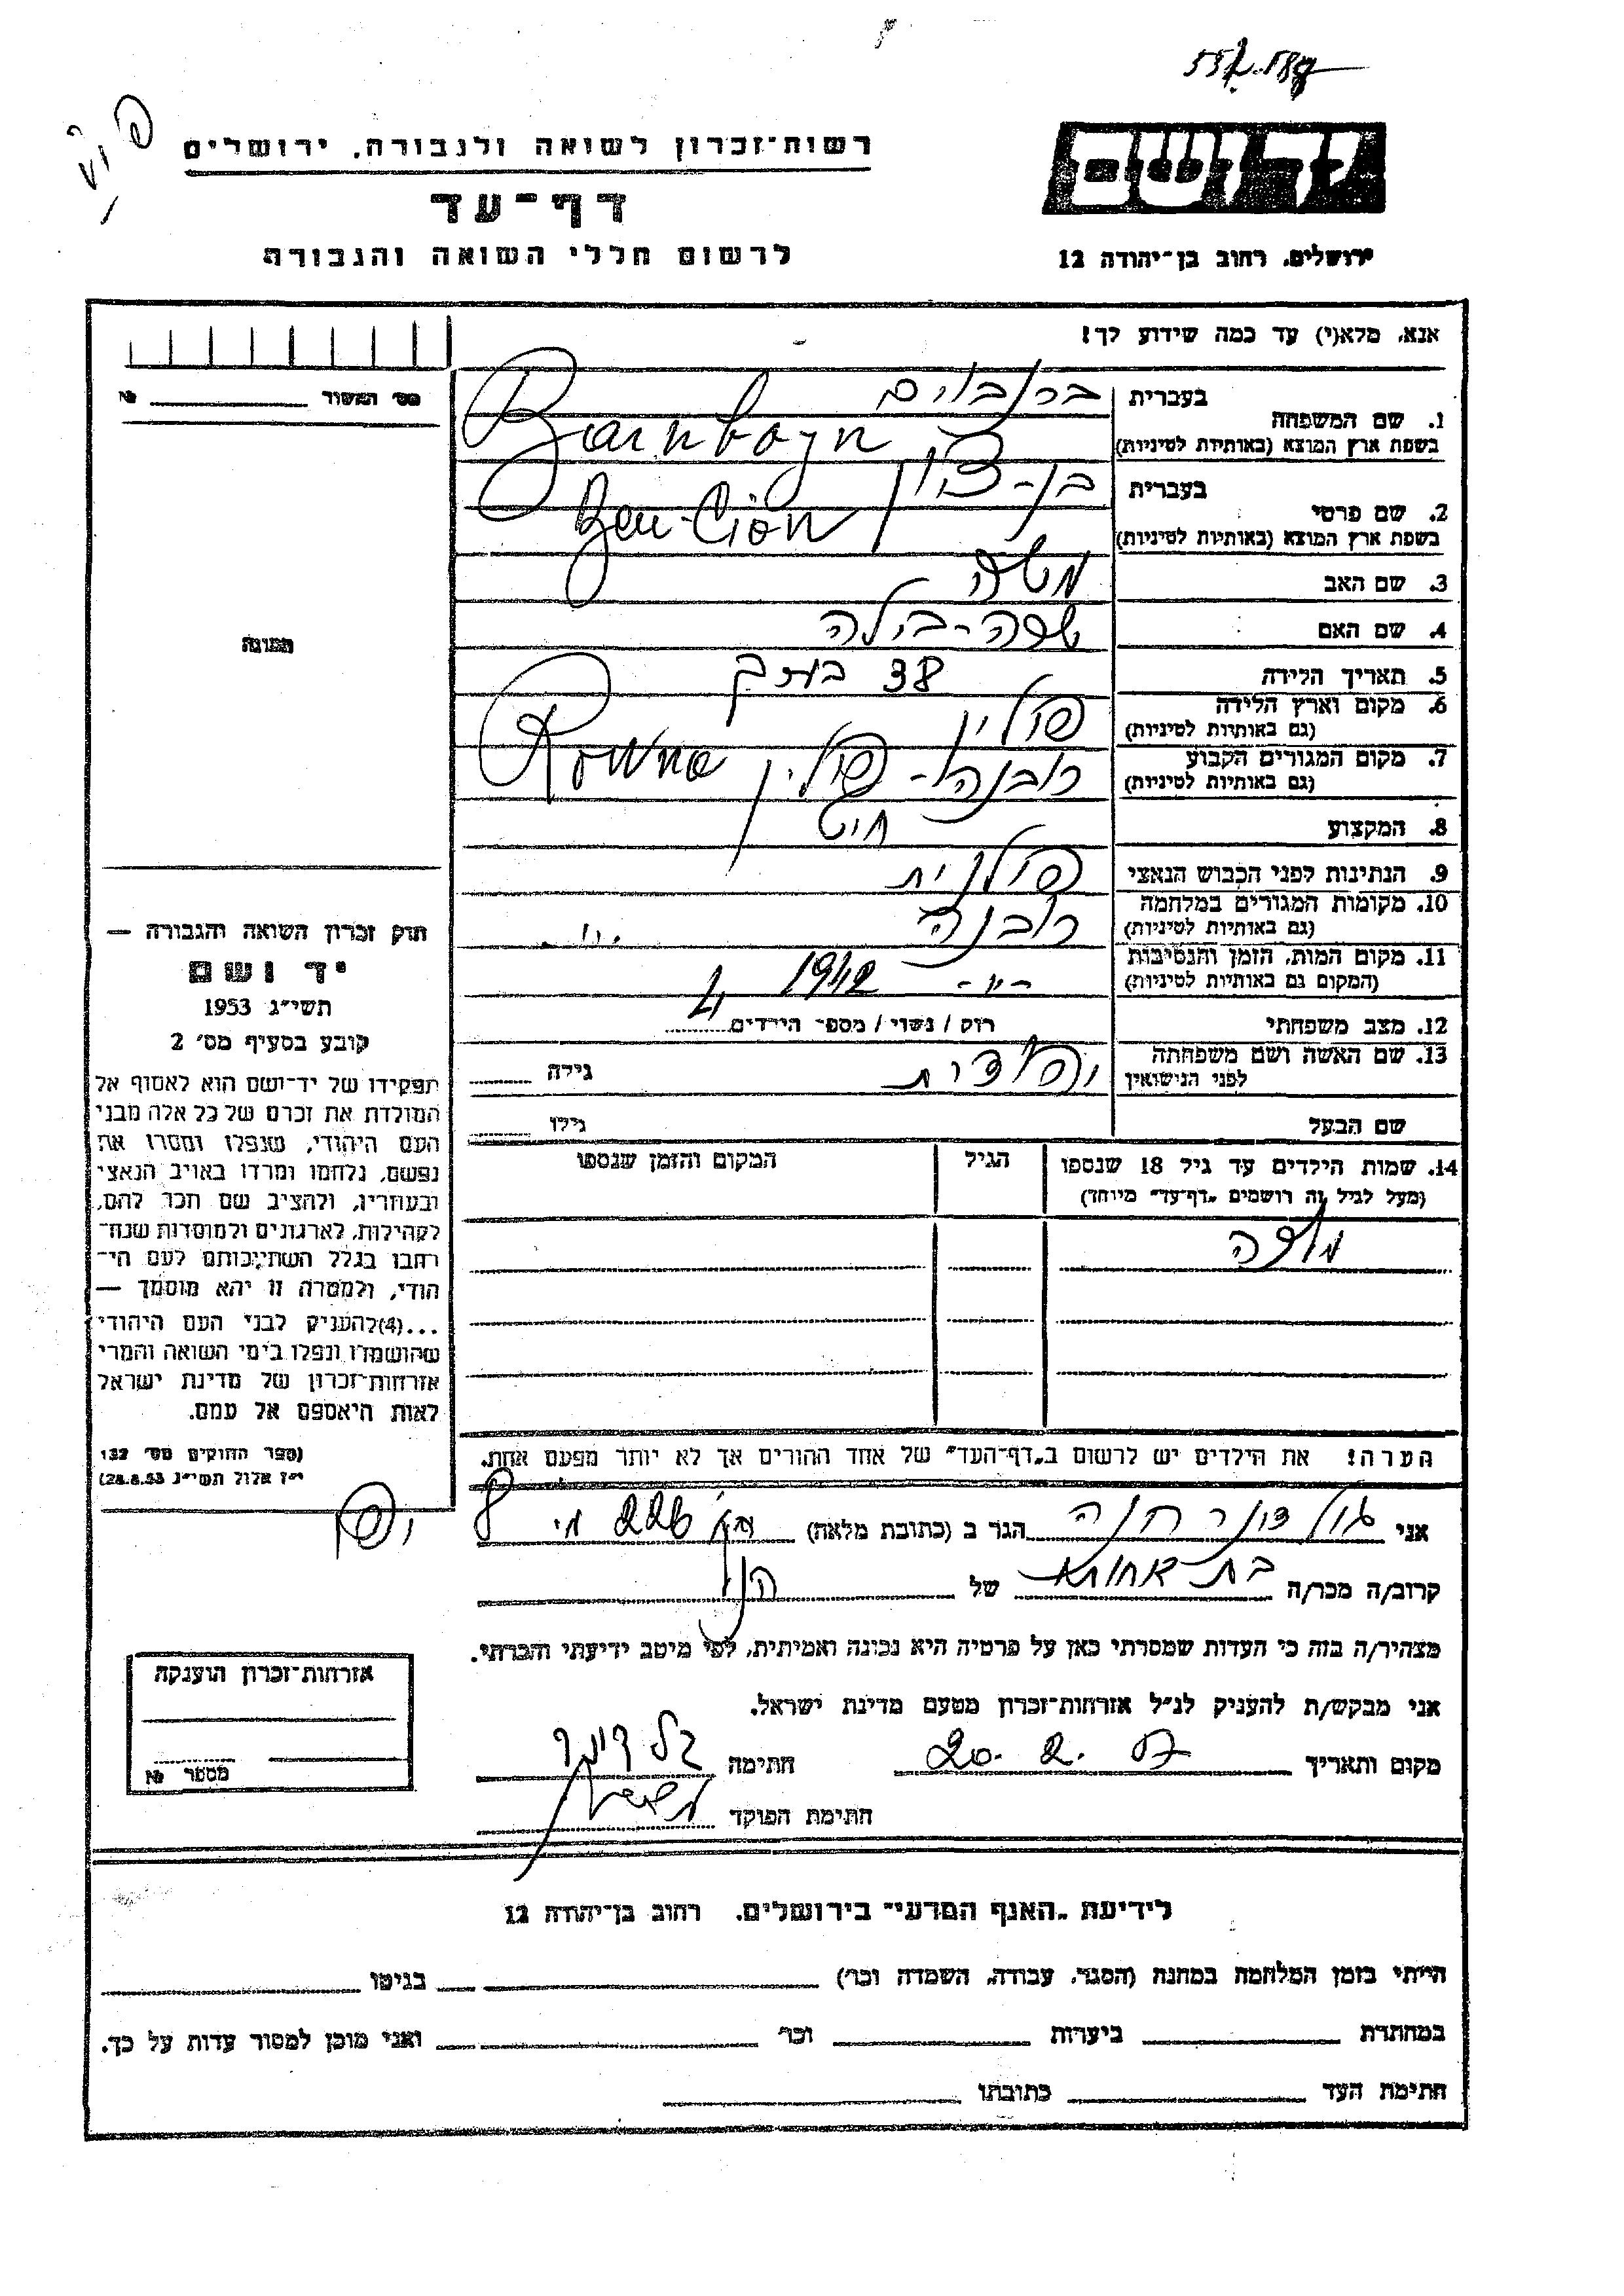 רשות־זכרון לשואה ולגבורה, ירושלים
דף־עד
לרשום חללי השואה והגבורה
יד ושם
ירושלים, רחוב בן־יהודה 12
אנא, מלא(י) עד כמה שידוע לך!
מס׳ האשור № 
1. שם המשפחה
בעברית ברנבוים
בשפת ארץ המוצא (באותיות לטיניות) Barnboyn
2. שם פרטי
בעברית בן-ציון
בשפת ארץ המוצא (באותיות לטיניות) Ben-Cion
3. שם האב משה
4. שם האם שרה-בילה
5. תאריך הלידה 38
6. מקום וארץ הלידה (גם באותיות לטיניות) פולין
7. מקום המגורים הקבוע (גם באותיות לטיניות) רובנה - פולין Rowne
8. המקצוע חיט
9. הנתינות לפני הכבוש הנאצי פולנית
10. מקומות המגורים במלחמה (גם באותיות לטיניות) רובנה
11. מקום המות, הזמן והנסיבות (המקום גם באותיות לטיניות) -"- 1942
12. מצב משפחתי רוק / נשוי / מספר הילדים
13. שם האשה ושם משפחתה לפני הנישואין גילה
שם הבעל גילו
14. שמות הילדים עד גיל 18 שנספו
(מעל לגיל זה רושמים „דף־עד״ מיוחד)
הגיל
המקום והזמן שנספו
הערה! את הילדים יש לרשום ב„דף־העד״ של אחד ההורים אך לא יותר מפעם אחת.
תמונה
חוק זכרון השואה והגבורה —
יד ושם
תשי״ג 1953
קובע בסעיף מס׳ 2
תפקידו של יד־ושם הוא לאסוף אל
המולדת את זכרם של כל אלה מבני
העם היהודי, שנפלו ומסרו את
נפשם, נלחמו ומרדו באויב הנאצי
ובעוזריו, ולהציב שם וזכר להם,
לקהילות, לארגונים ולמוסדות שנח־
רבו בגלל השתייכותם לעם הי־
הודי, ולמטרה זו יהא מוסמך —
...(4)להעניק לבני העם היהודי
שהושמדו ונפלו בימי השואה והמרי
אזרחות־זכרון של מדינת ישראל
לאות היאספם אל עמם.
(ספר החוקים מס׳ 132
י״ז אלול תשי״ג 28.8.53)
אני חנה הגר ב (כתובת מלאה) 226 יפו
קרוב/ה מכר/ה בת אחות של הנ״ל
מצהיר/ה בזה כי העדות שמסרתי כאן על פרטיה היא נכונה ואמיתית, לפי מיטב ידיעתי והכרתי.
אני מבקש/ת להעניק לנ״ל אזרחות־זכרון מטעם מדינת ישראל.
מקום ותאריך 20. 2. 57 חתימה
חתימת הפוקד
אזרחות־זכרון הוענקה
מספר №
לידיעת „האגף המדעי״ בירושלים, רחוב בן־יהודה 12
הייתי בזמן המלחמה במחנה (הסגר, עבודה, השמדה וכר׳) בגיטו
במחתרת ביערות וכר׳ ואני מוכן למסור עדות על כך.
חתימת העד כתובתו